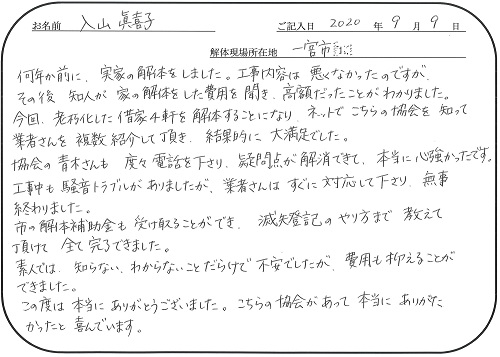 お名前 入山 眞喜子 ご記入日 2020 年 9 月 9 日
解体現場所在地 一宮市
何年か前に、実家の解体をしました。工事内容は悪くなかったのですが、
その後 知人が 家の解体をした費用を聞き、高額だったことがわかりました。
今回、老朽化した借家4軒を解体することになり、ネットでこちらの協会を知って
業者さんを複数紹介して頂き、結果的に大満足でした。
協会の青木さんも 度々電話を下さり、疑問点が解消できて、本当に心強かったです。
工事中も騒音トラブルがありましたが、業者さんはすぐに対応して下さり、無事
終わりました。
市の解体補助金も受け取ることができ、滅失登記のやり方まで教えて
頂けて 全て完了できました。
素人では、知らない、わからないことだらけで不安でしたが、費用も抑えることが
できました。
この度は本当にありがとうございました。こちらの協会があって本当にありがた
かったと喜んでいます。